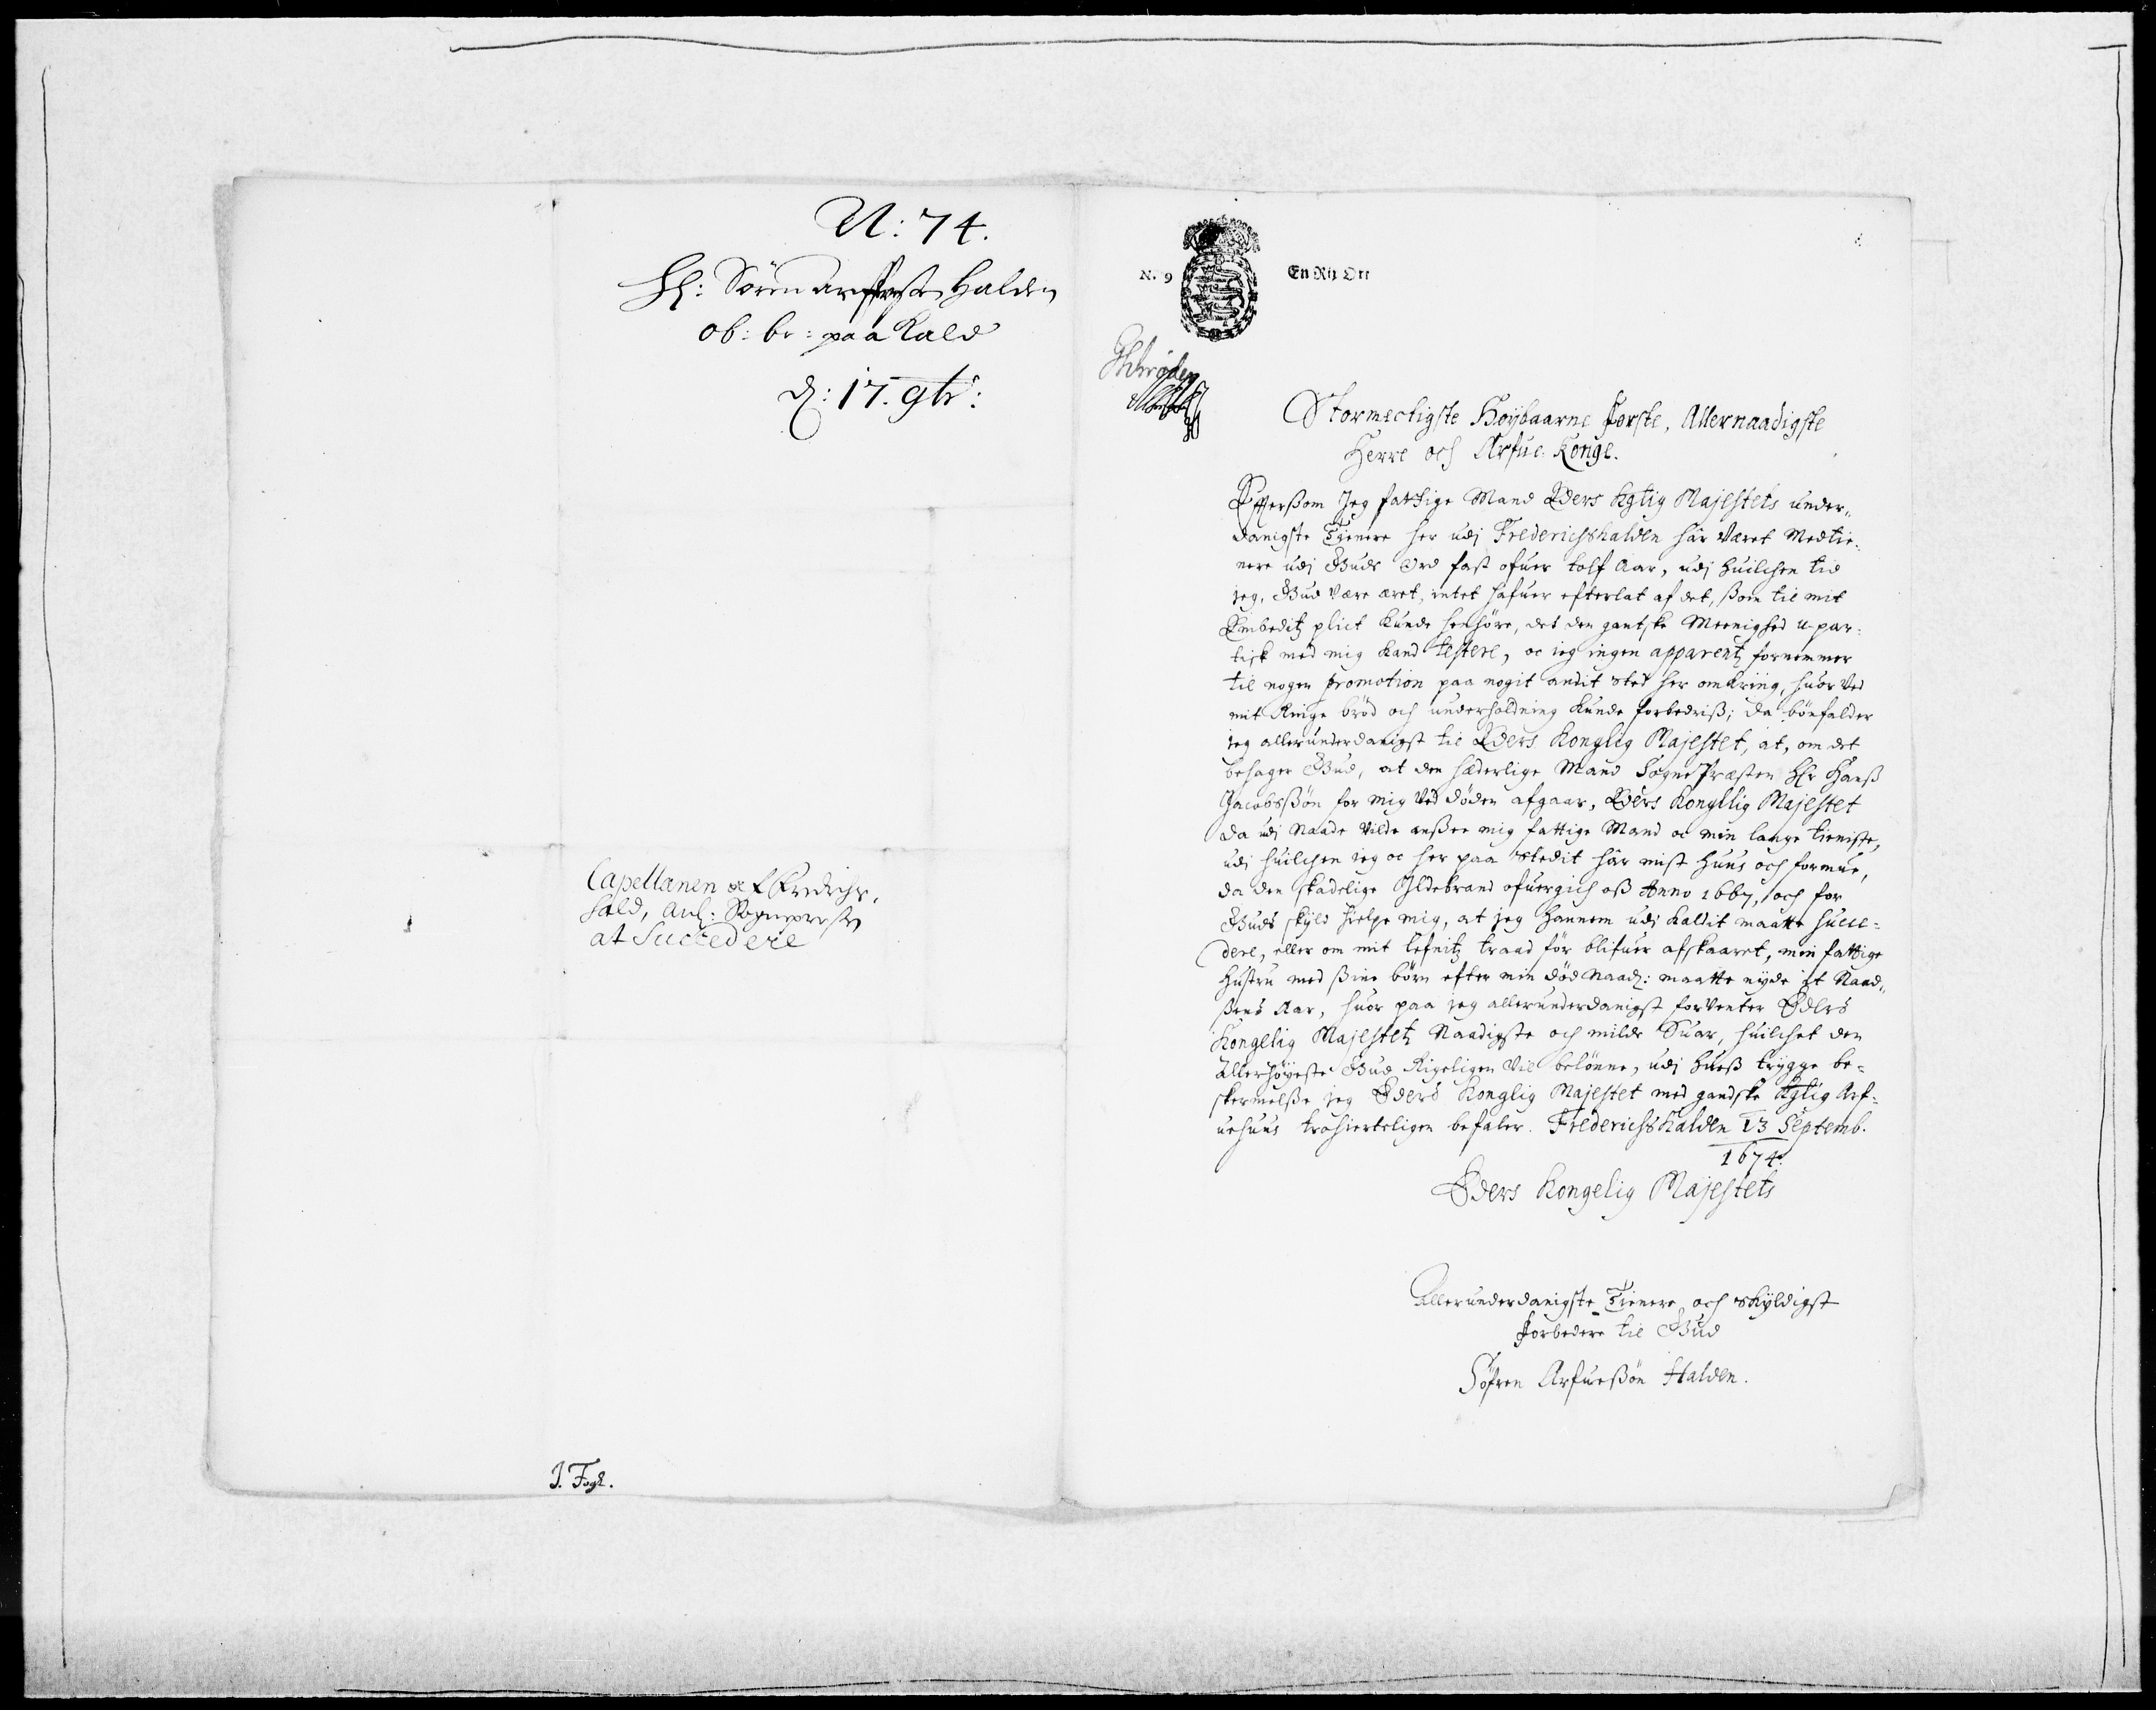 N: 74.
Hl: Sören Halden
ob: br: paa Kald
d: 17. 9br:
Capellanen
hald, anl: Sogneprest
at Succedere
J. Fogl.
N. 9
En Rix Ort
Stormectigste Höybaarne Förste, Allernaadigste
Herre och Arfue Konge.
Effterßom Jeg fattige Mand Eders Kglig Majestets under„
danigste Tienere her udj Frederichshalden här Været Medtie„
nere udj Guds Ord fast ofuer tolf Aar, udj huilchen tid
jeg, Gud være æret, intet hafuer efterlat af det, ßom til mit
Embeditz plict kunde henhöre, det den gantske Meenighed u-par„
tisk med mig kand testere, oc jeg ingen apparentz fornemmer
til nogen promotion paa nogit andit sted her omkring, huor ved
mit Ringe bröd och underholdning kunde forbedriß; da bönfalder
jeg allerunderdanigst til Eders Konglig Majestet, at, om det
behager Gud, at den hæderlige Mand SognePræsten Hr Hanß
Jacobsßön for mig ved döden afgaar, Eders Konglig Majestet
da udj Naade vilde anßee mig fattige Mand oc min lange tieniste,
udj huilchen jeg oc her paa Stedit här mist huus och formue,
da den skadelige Ildebrand ofuergich oß Anno 1667, och for
Guds skyld hielpe mig, at jeg Hannem udj kaldit maatte succe„
dere, eller om mit lefnitz traad för blifuer afskaaret, min fattige
Hustru med ßine börn efter min död Naad: maatte nyde it Naad„
ßens Aar, huor paa jeg allerunderdanigst forventer Eders
Kongelig Majestetz Naadigste och milde Suar, huilchet den
Allerhöyeste Gud Rigeligen vil belönne, udj hueß trygge be„
skermelße jeg Eders Konglig Majestet med gandske Kglig Arf„
uehuus trohierteligen befaler. Frederichshalden 13 Septemb.
1674.
Eders Kongelig Majestets
Allerunderdanigste Tienere och skyldigst
Forbedere til Gud
Söfren Arfueßön Halden.